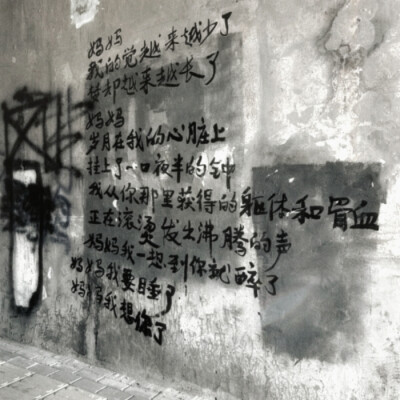 妈妈
我的觉越来越少了
梦却越来越长了
妈妈
岁月在我的心脏上
挂上了一口夜半的钟
我从你那里获得的躯体和冒血
正在滚烫发出沸腾的声
妈妈我一想到你就醉了
妈妈我要睡了
妈妈我想你了